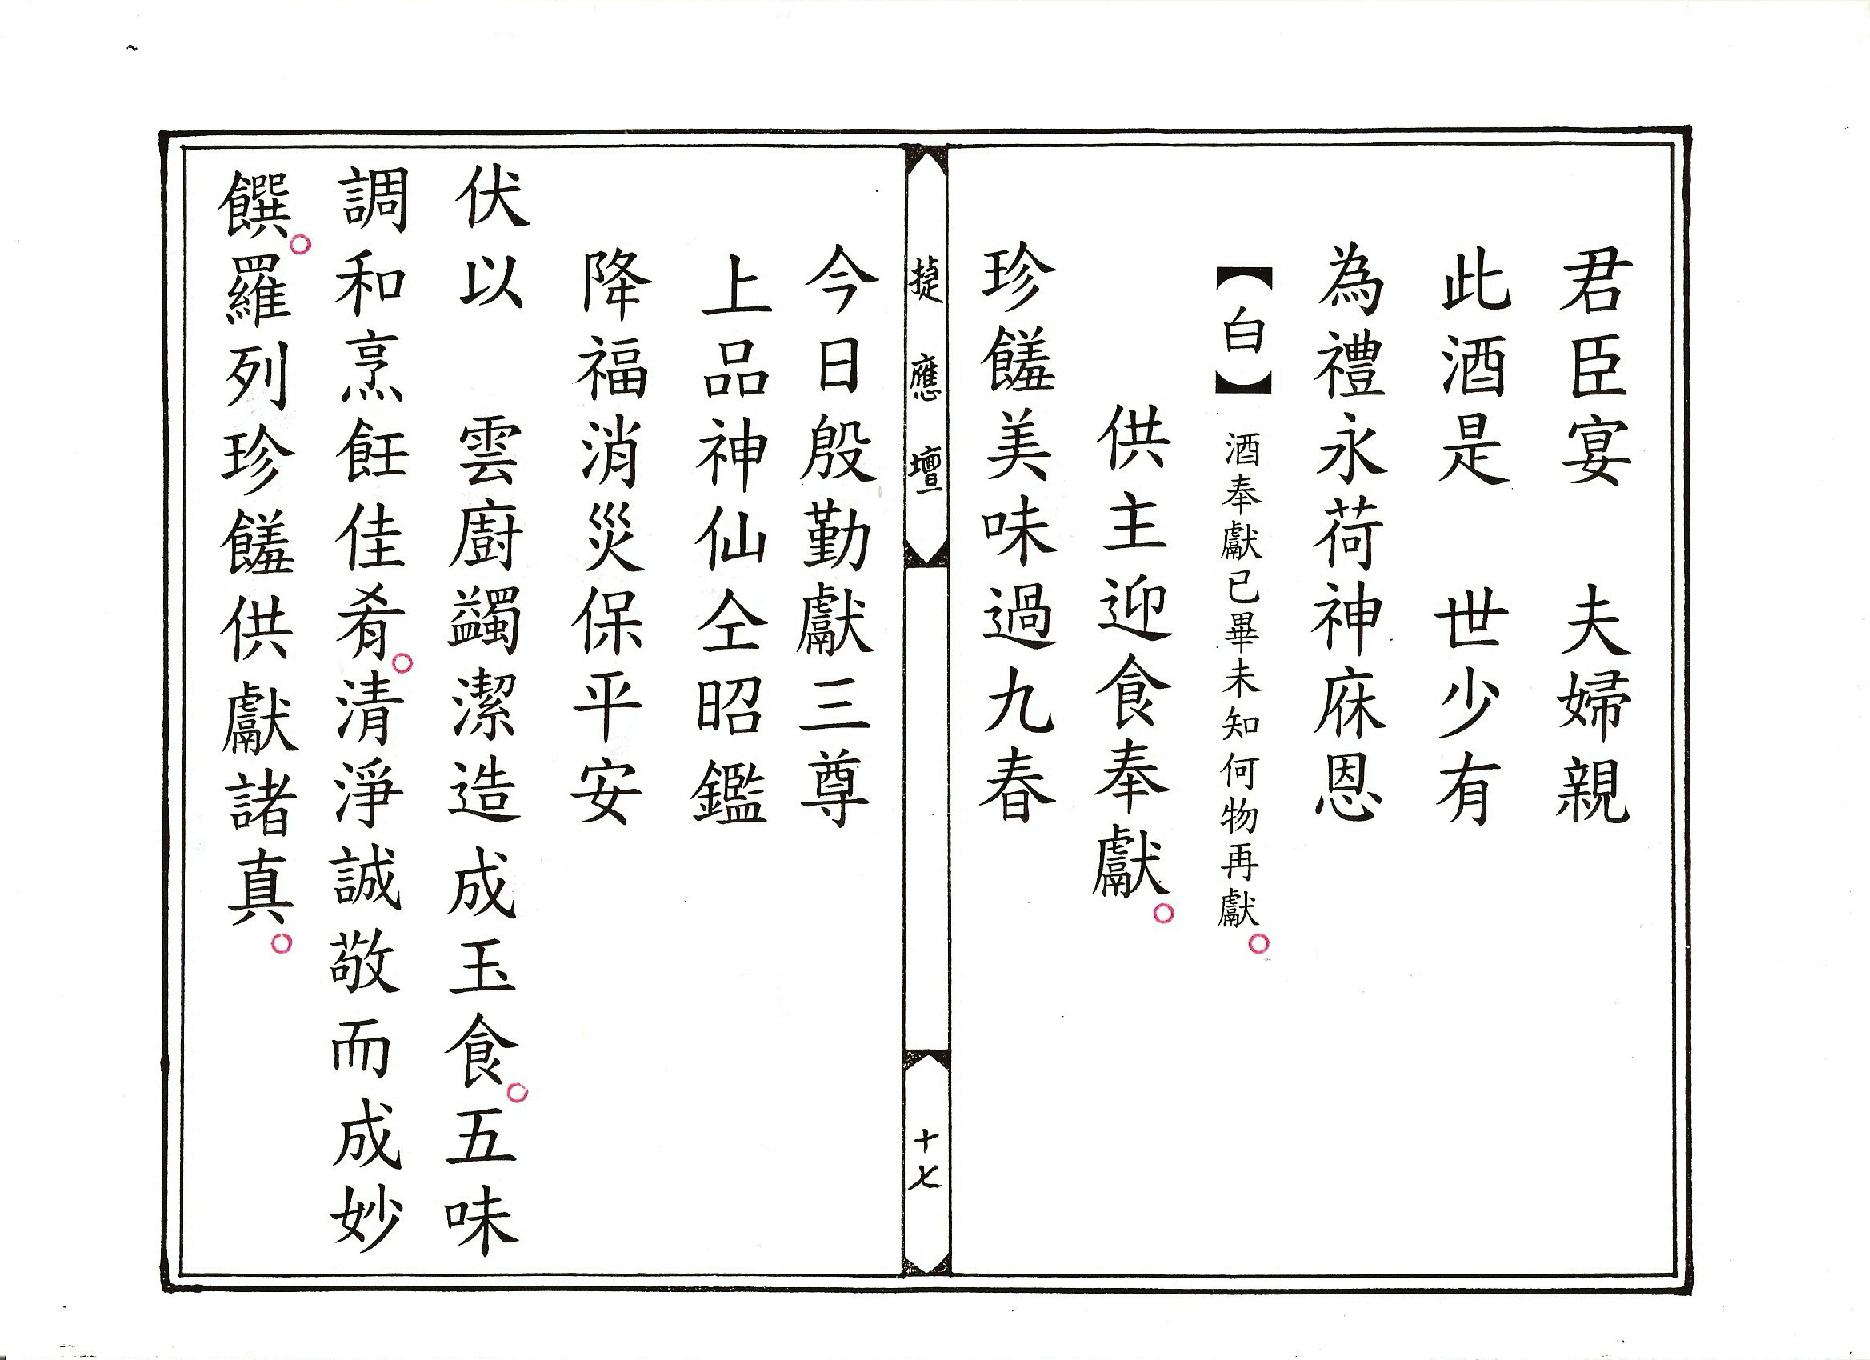 君臣宴　夫婦親
此酒是　世少有
為禮永荷神庥恩
【白】酒奉獻已畢未知何物再獻。
供主迎食奉獻。
珍饈美味過九春
捷應壇
十七
今日殷勤獻三尊
上品神仙仝昭鑑
降福消災保平安
伏以　雲廚蠲潔造成玉食。五味
調和烹飪佳肴。清淨誠敬而成妙
饌。羅列珍饈供獻諸真。